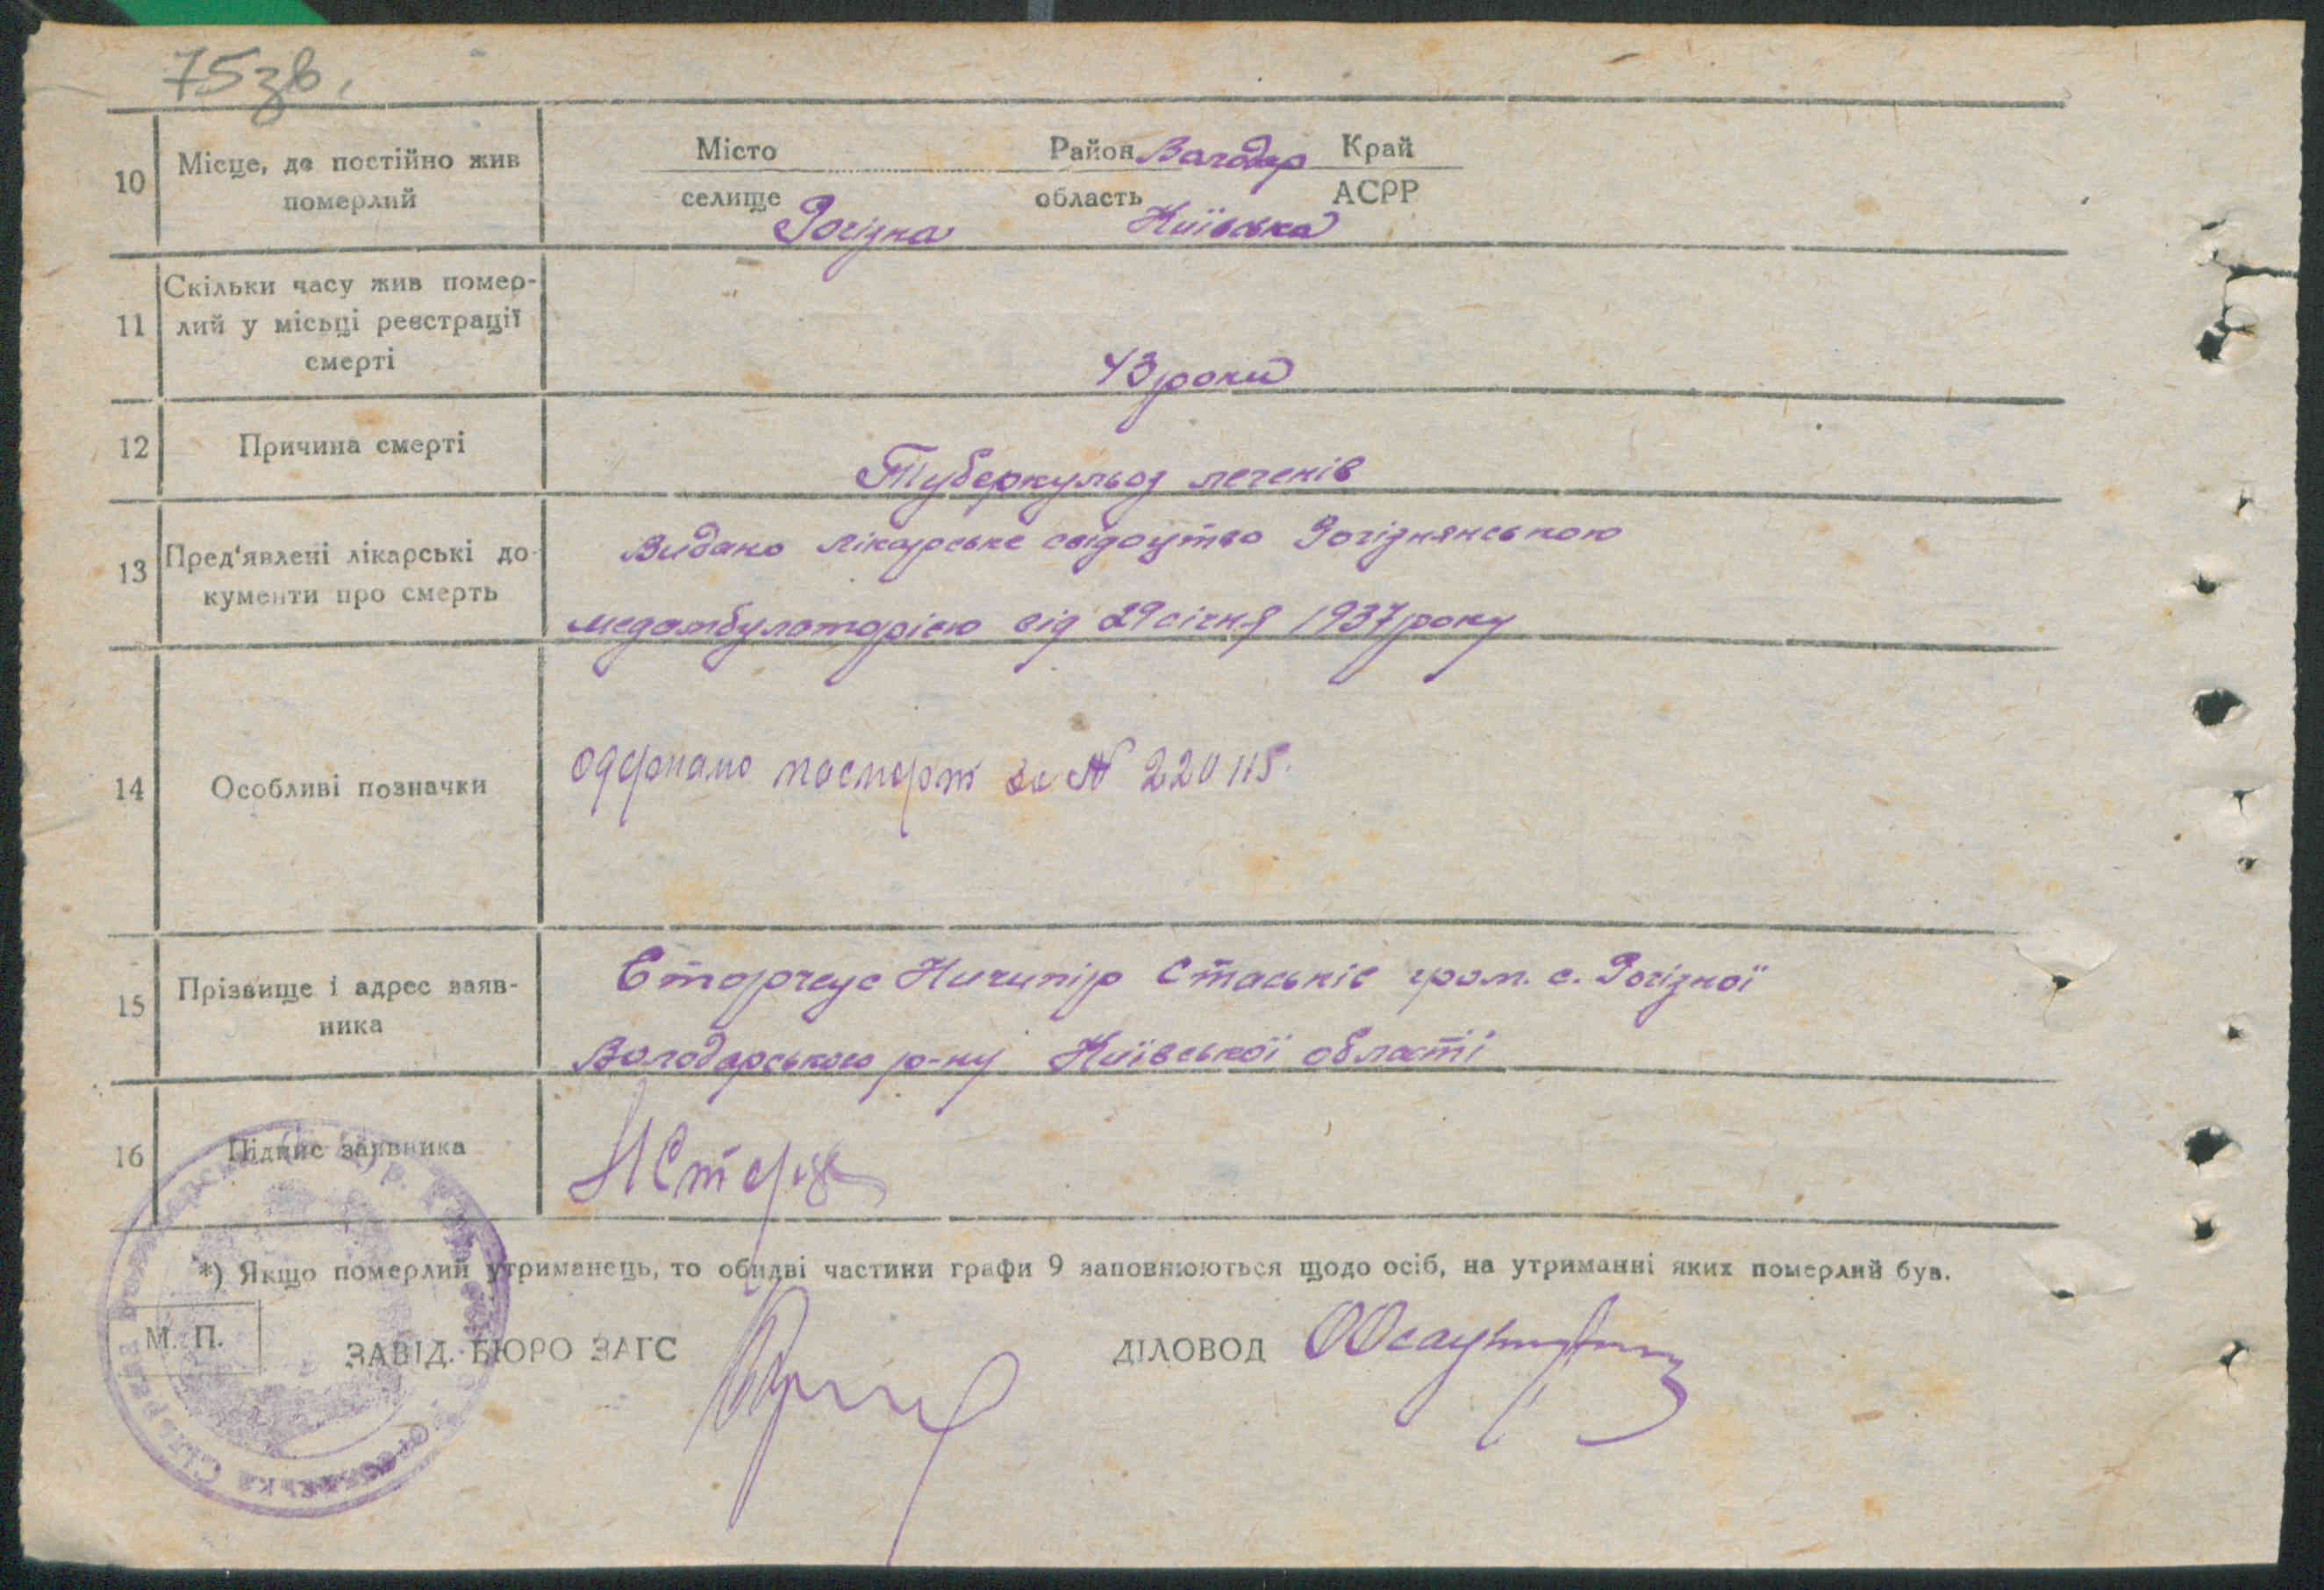 75зв.
10 Місце, де постійно жив померлий
Місто Район Володар Край
селище область АСРР
Рогізна Київська
11 Скільки часу жив помер-
лий у місьці реєстрації
смерті
43 роки
12 Причина смерті
Туберкульоз легенів
13 Пред'явлені лікарські до-
кументи про смерть
Видано лікарське свідоцтво Рогізнянською
медамбулаторією від 29 січня 1937 року
14 Особливі позначки
одібрано паспорт за № 220115.
15 Прізвище і адрес заяв-
ника
Ничипір Стаськів гром. с. Рогізної
Володарського р-ну Київської області
16 Підпис заявника
*) Якщо померлий утриманець, то обидві частини графи 9 заповнюються щодо осіб, на утриманні яких померлий був.
М. П.
ЗАВІД. БЮРО ЗАГС
ДІЛОВОД